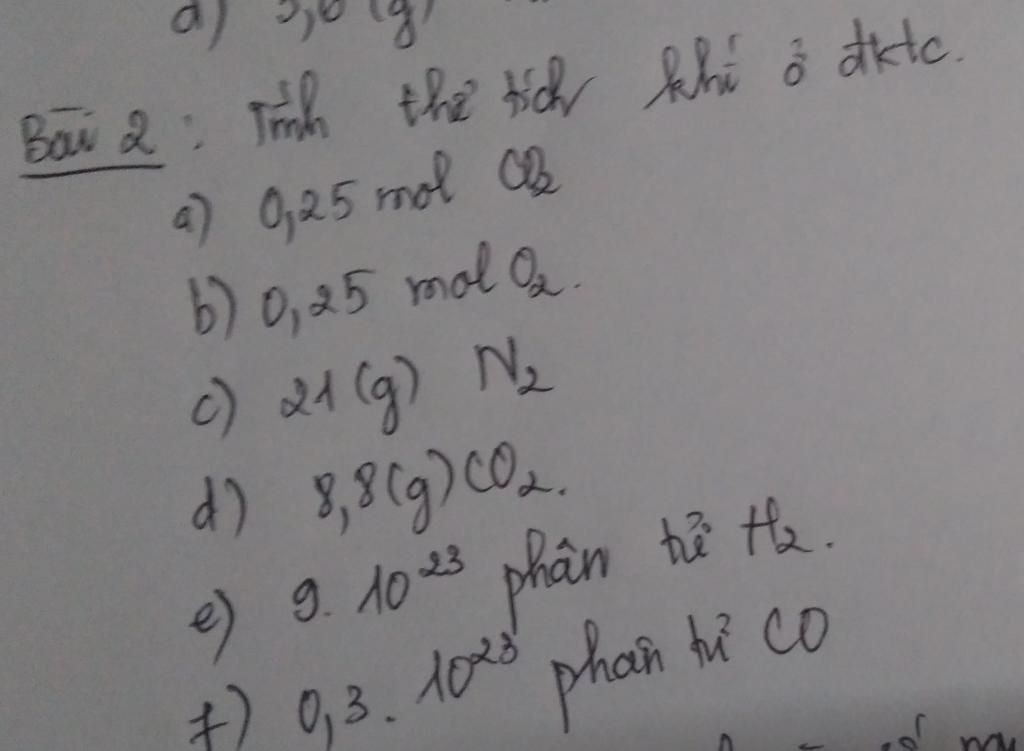 d) 5,6 (g)
Bài 2 : Tính thể tích khí ở đktc.
a) 0,25 mol CO2
b) 0,25 mol O2.
c) 21 (g) N2
d) 8,8 (g) CO2.
e) 9. 10^23 phân tử H2.
f) 0,3. 10^23 phân tử CO